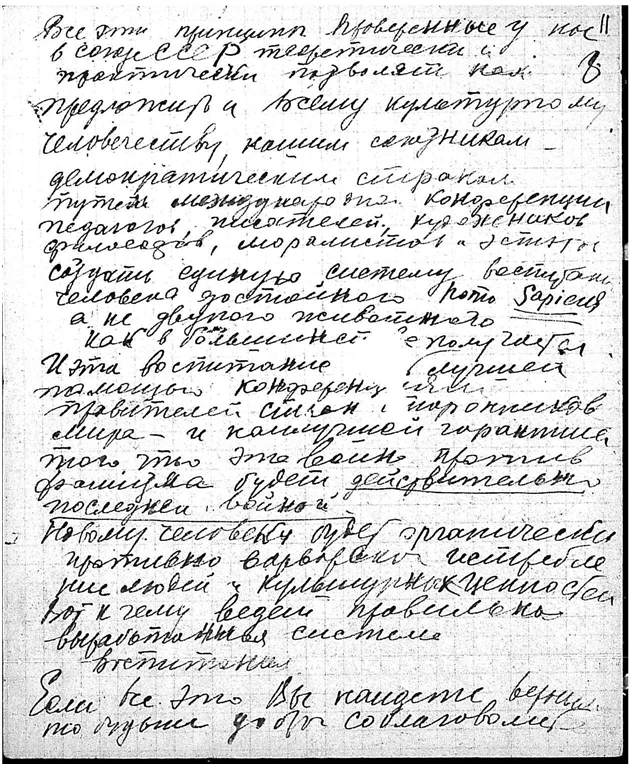 Все эти принципы проверенные у нас 11
в союз СССР теоретически и
практически позволят нам 3
предложить и всему культурному
человечеству, нашим союзникам –
демократическим странам
путем международной конференции
педагогов, писателей, художников
философов, моралистов и
создать единую систему воспитания
человека достойного homo Sapiens
а не двуногого животного
как в большинстве получается
И эта воспитание лучшей
помощью конференции
правителей стран и
мира – и наилучшей гарантия
того что эта война против
фашизма будет действительно
последней войной
Новому человеку будет органически
противно варварское истребле
ние людей и культурных ценностей
Вот к чему ведет правильно
выработанная система
воспитания
Если все это Вы найдете верным
то будьте добры соблаговолите